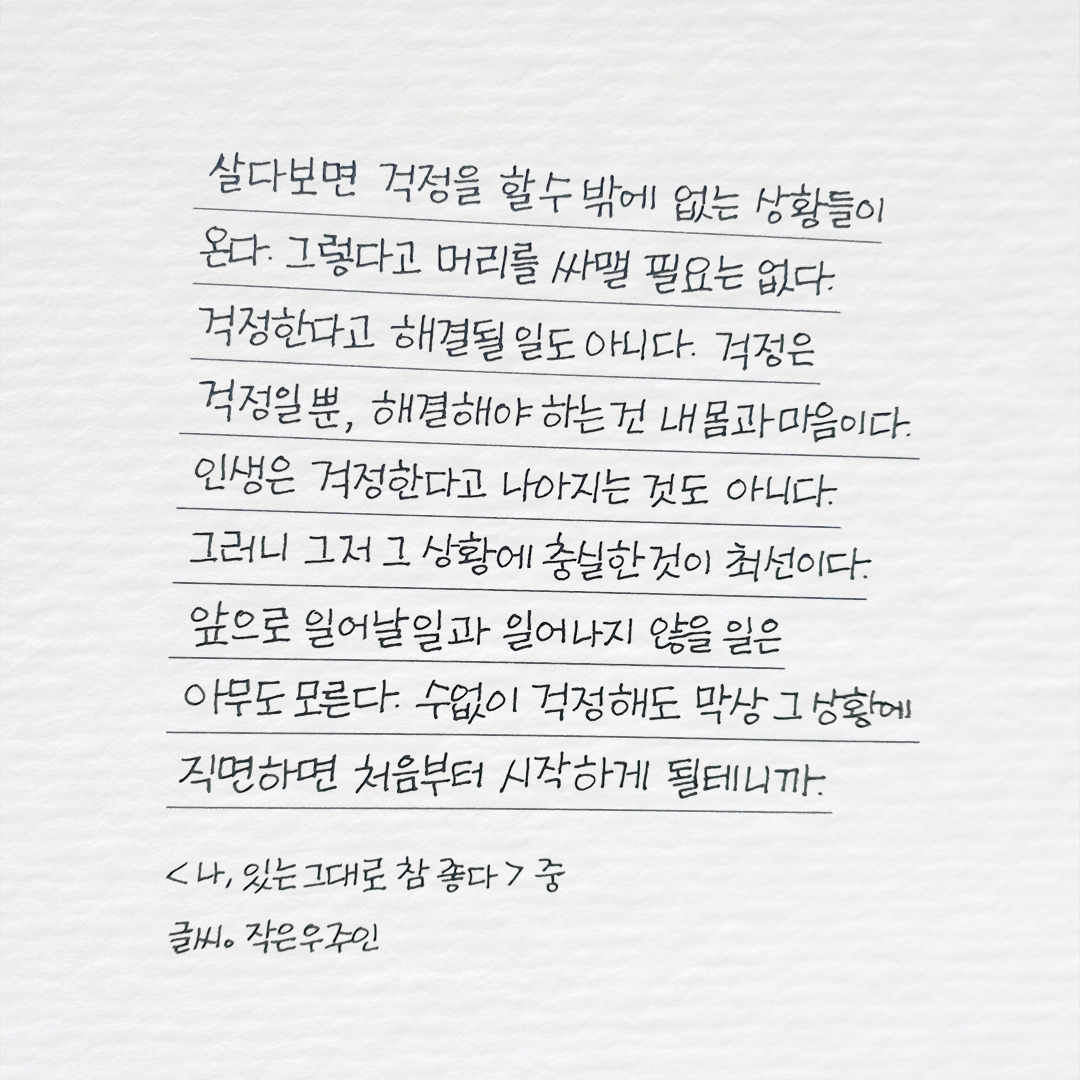 살다보면 걱정을 할 수 밖에 없는 상황들이
온다. 그렇다고 머리를 싸맬 필요는 없다.
걱정한다고 해결될 일도 아니다. 걱정은
걱정일 뿐, 해결해야 하는 건 내 몸과 마음이다.
인생은 걱정한다고 나아지는 것도 아니다.
그러니 그저 그 상황에 충실한 것이 최선이다.
앞으로 일어날 일과 일어나지 않을 일은
아무도 모른다. 수없이 걱정해도 막상 그 상황에
직면하면 처음부터 시작하게 될테니까.
<나, 있는 그대로 참 좋다> 중
글씨。 작은우주인